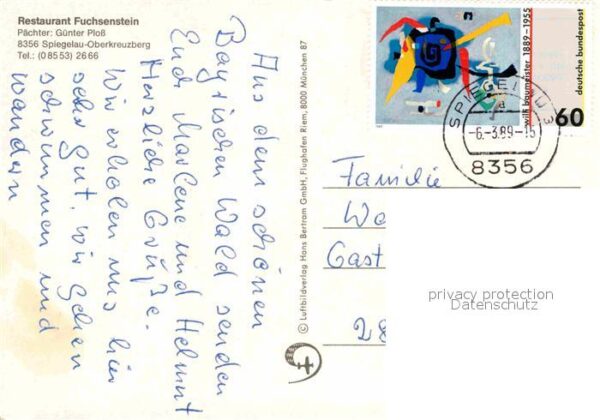 Restaurant Fuchsenstein
Pächter: Günter Ploß
8356 Spiegelau-Oberkreuzberg
Tel.: (0 85 53) 26 66
Aus dem schönen
Bayrischen Wald senden
Euch Marlene und Helmut
Herzliche Grüße.
Wir erholen uns hier
sehr gut, wir gehen
schwimmen und
wandern
© Luftbildverlag Hans Bertram GmbH, Flughafen Riem, 8000 München 87
willi baumeister 1889-1955
deutsche bundespost
60
SPIEGELAU 3
a
-6.-3.89-15
8356
Familie
Wo
Gast
28
privacy protection
Datenschutz